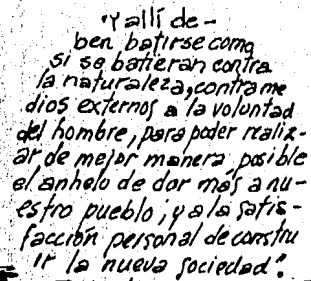 "Y allí de-
ben batirse como
si se batieran contra
la naturaleza, contra me
dios externos a la voluntad
del hombre, para poder realiz-
ar de mejor manera posible
el anhelo de dar más a nu-
estro pueblo; y a la satis-
facción personal de constru
ir la nueva sociedad."